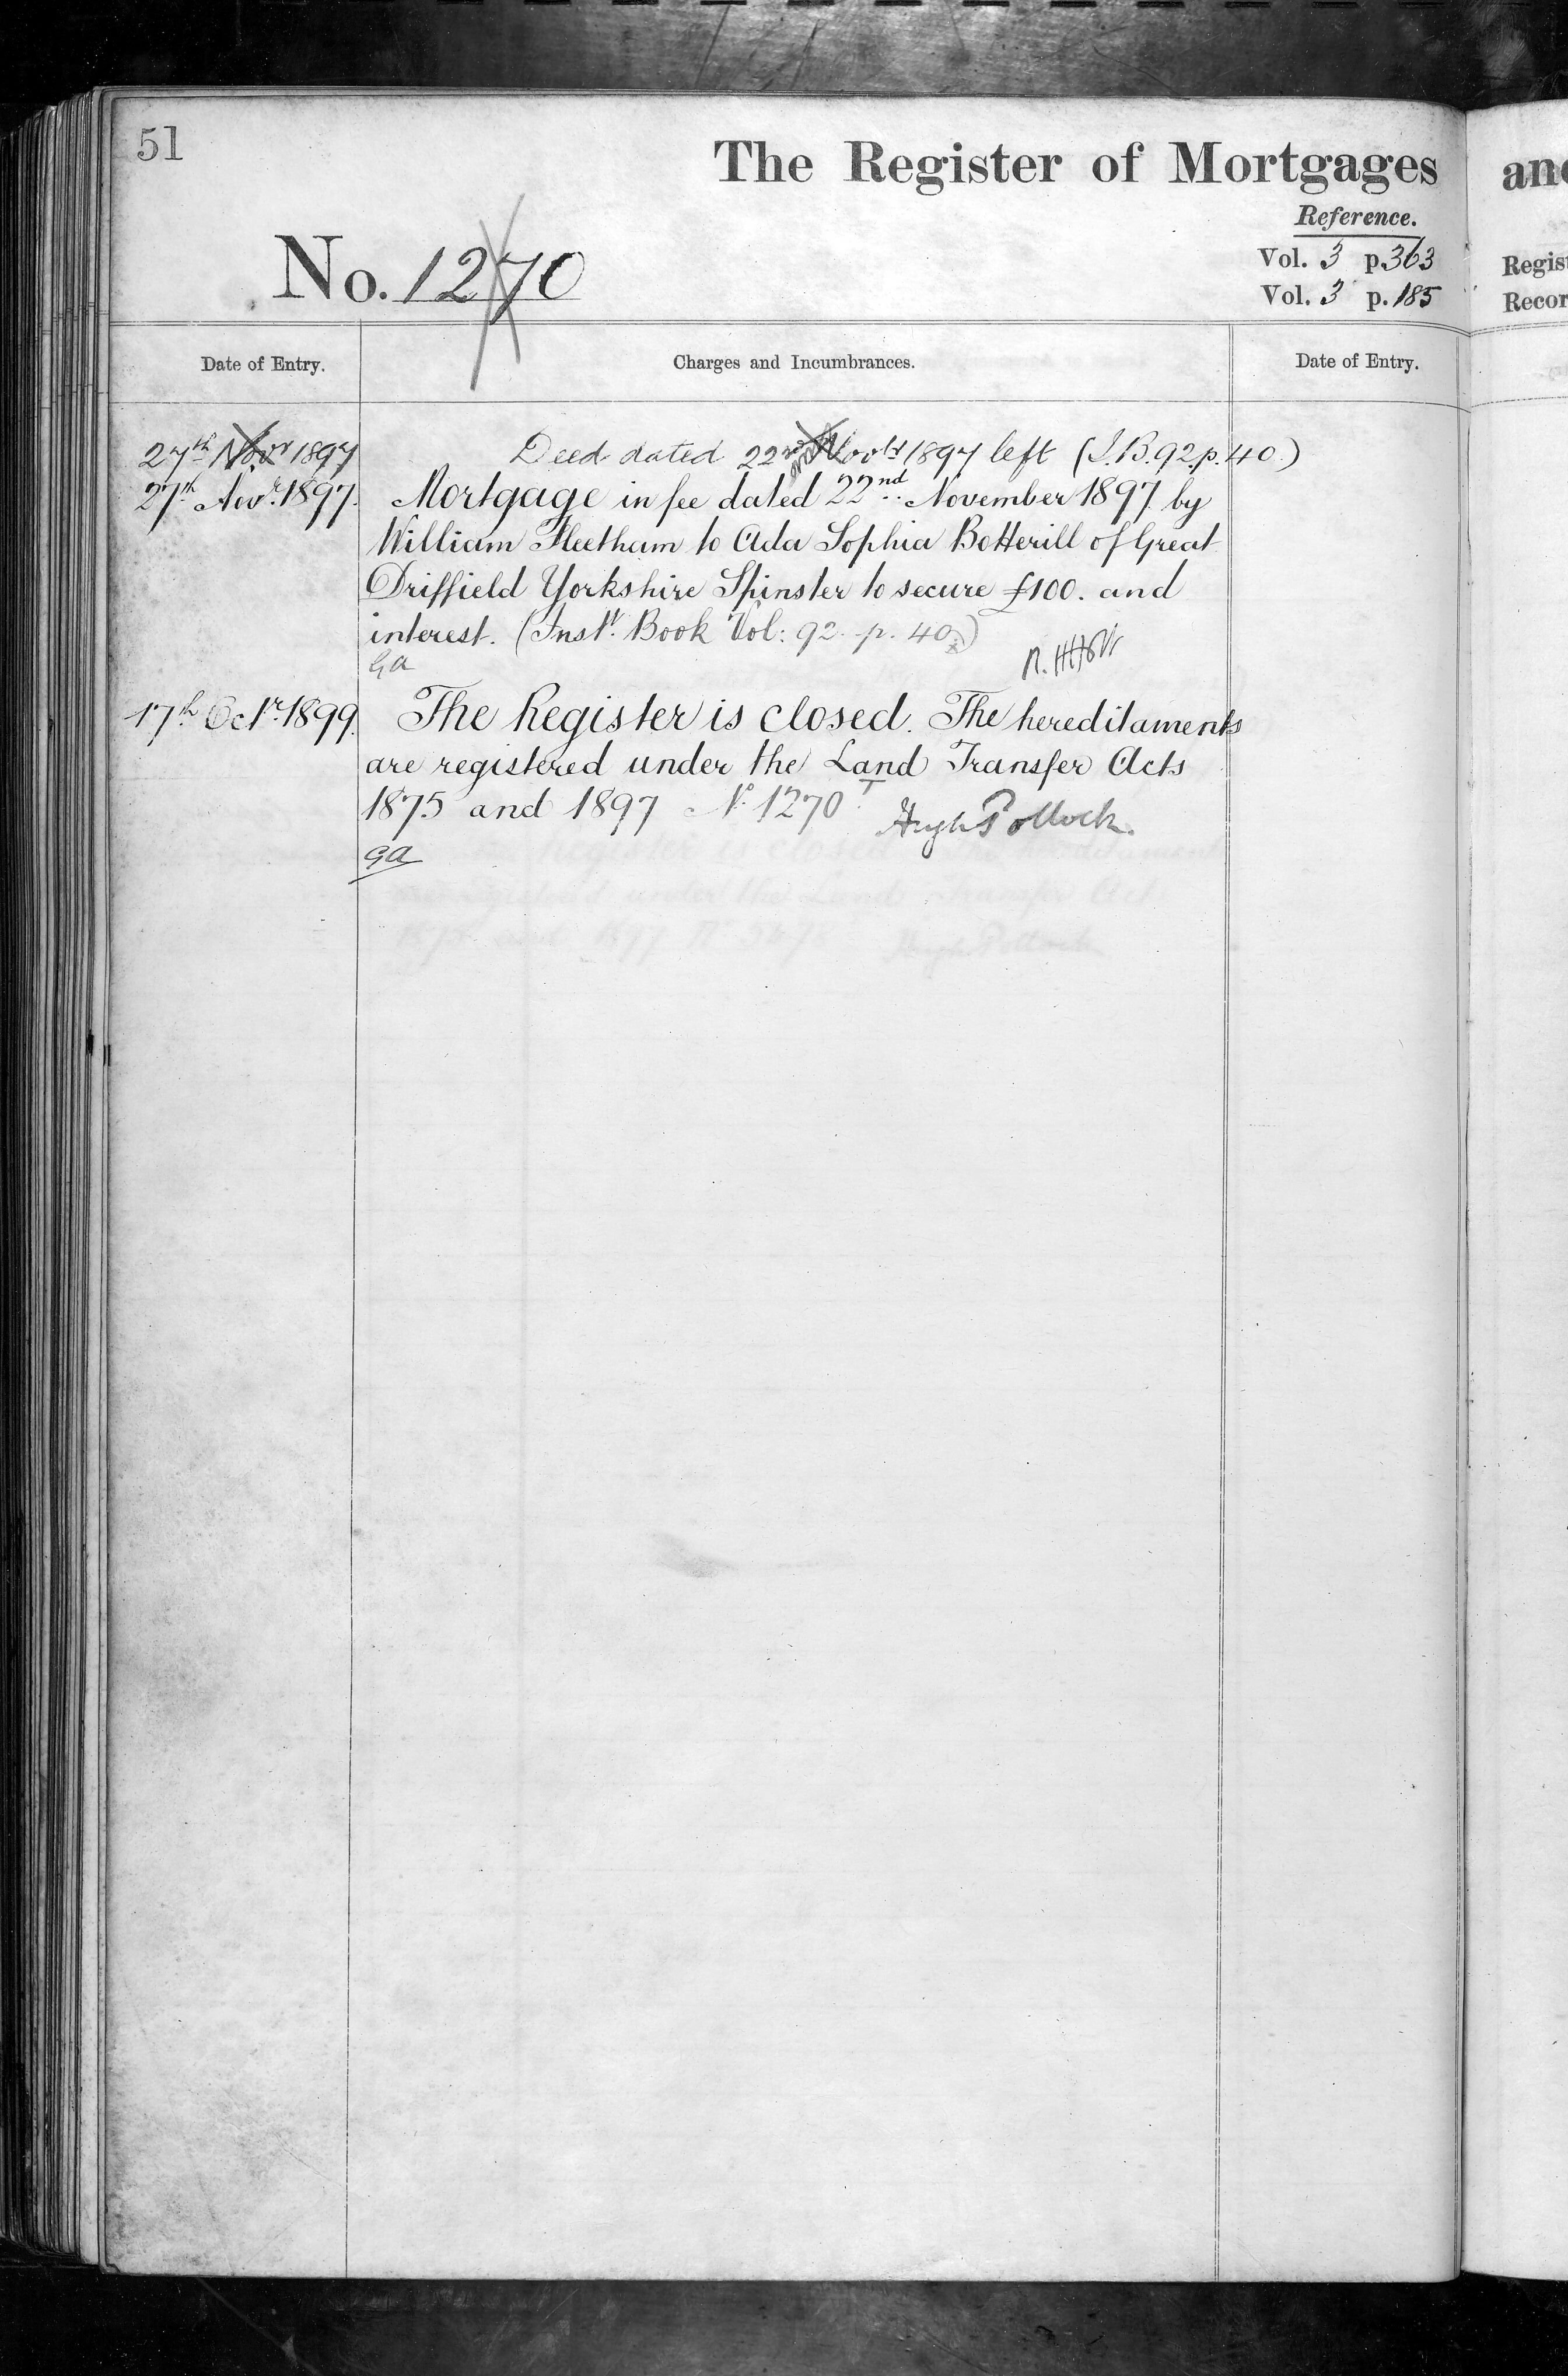 51
The Register of Mortgages
and
Reference.
No. 1270
Vol. 3 p. 363
Vol. 3 p. 185
Date of Entry.
Charges and Incumbrances.
Date of Entry.
27th Novr 1897 Deed dated 22nd 1897 left (I.B. 92. p. 40.)
27th Novr. 1897. Mortgage in fee dated 22nd November 1897 by
William Fleetham to Ada Sophia Botterill of Great
Driffield Yorkshire Spinster to secure £100. and
interest. (Instt. Book Vol: 92. p. 40.)
GA
17th Octr. 1899. The Register is closed. The hereditaments
are registered under the Land Transfer Acts
1875 and 1897 No. 1270T. Hugh Pollock.
GA